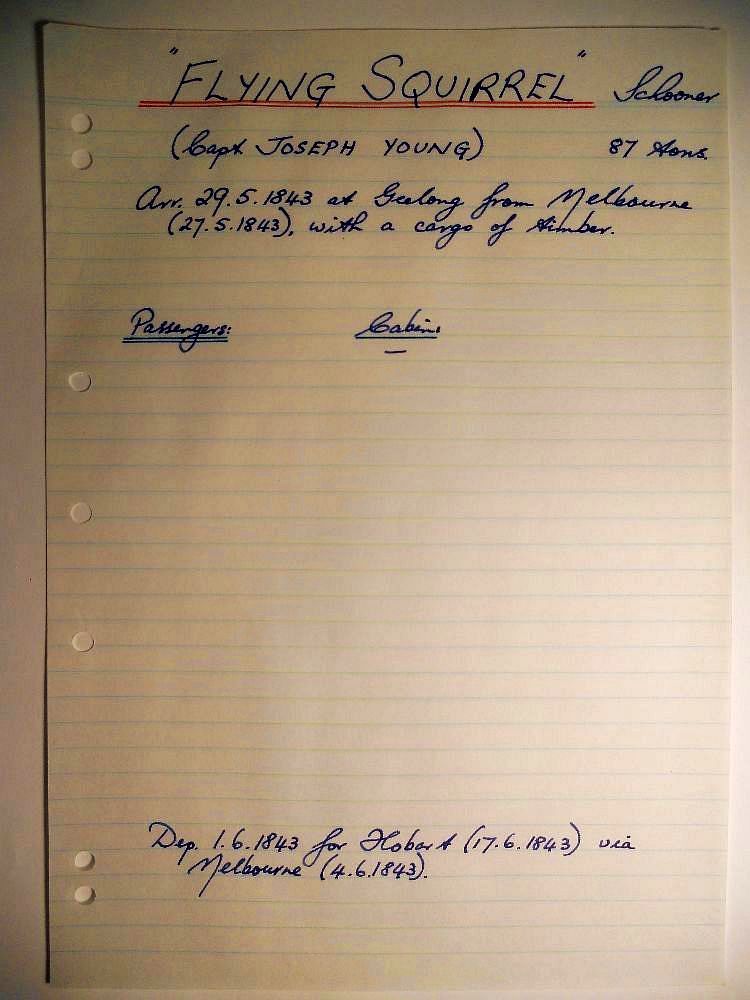 "FLYING SQUIRREL" Schooner
(Capt JOSEPH YOUNG) 87 tons.
Arr. 29.5.1843 at Geelong from Melbourne
(27.5.1843), with a cargo of timber.
Passengers: Cabin:
—
Dep. 1.6.1843 for Hobart (17.6.1843) via
Melbourne (4.6.1843).